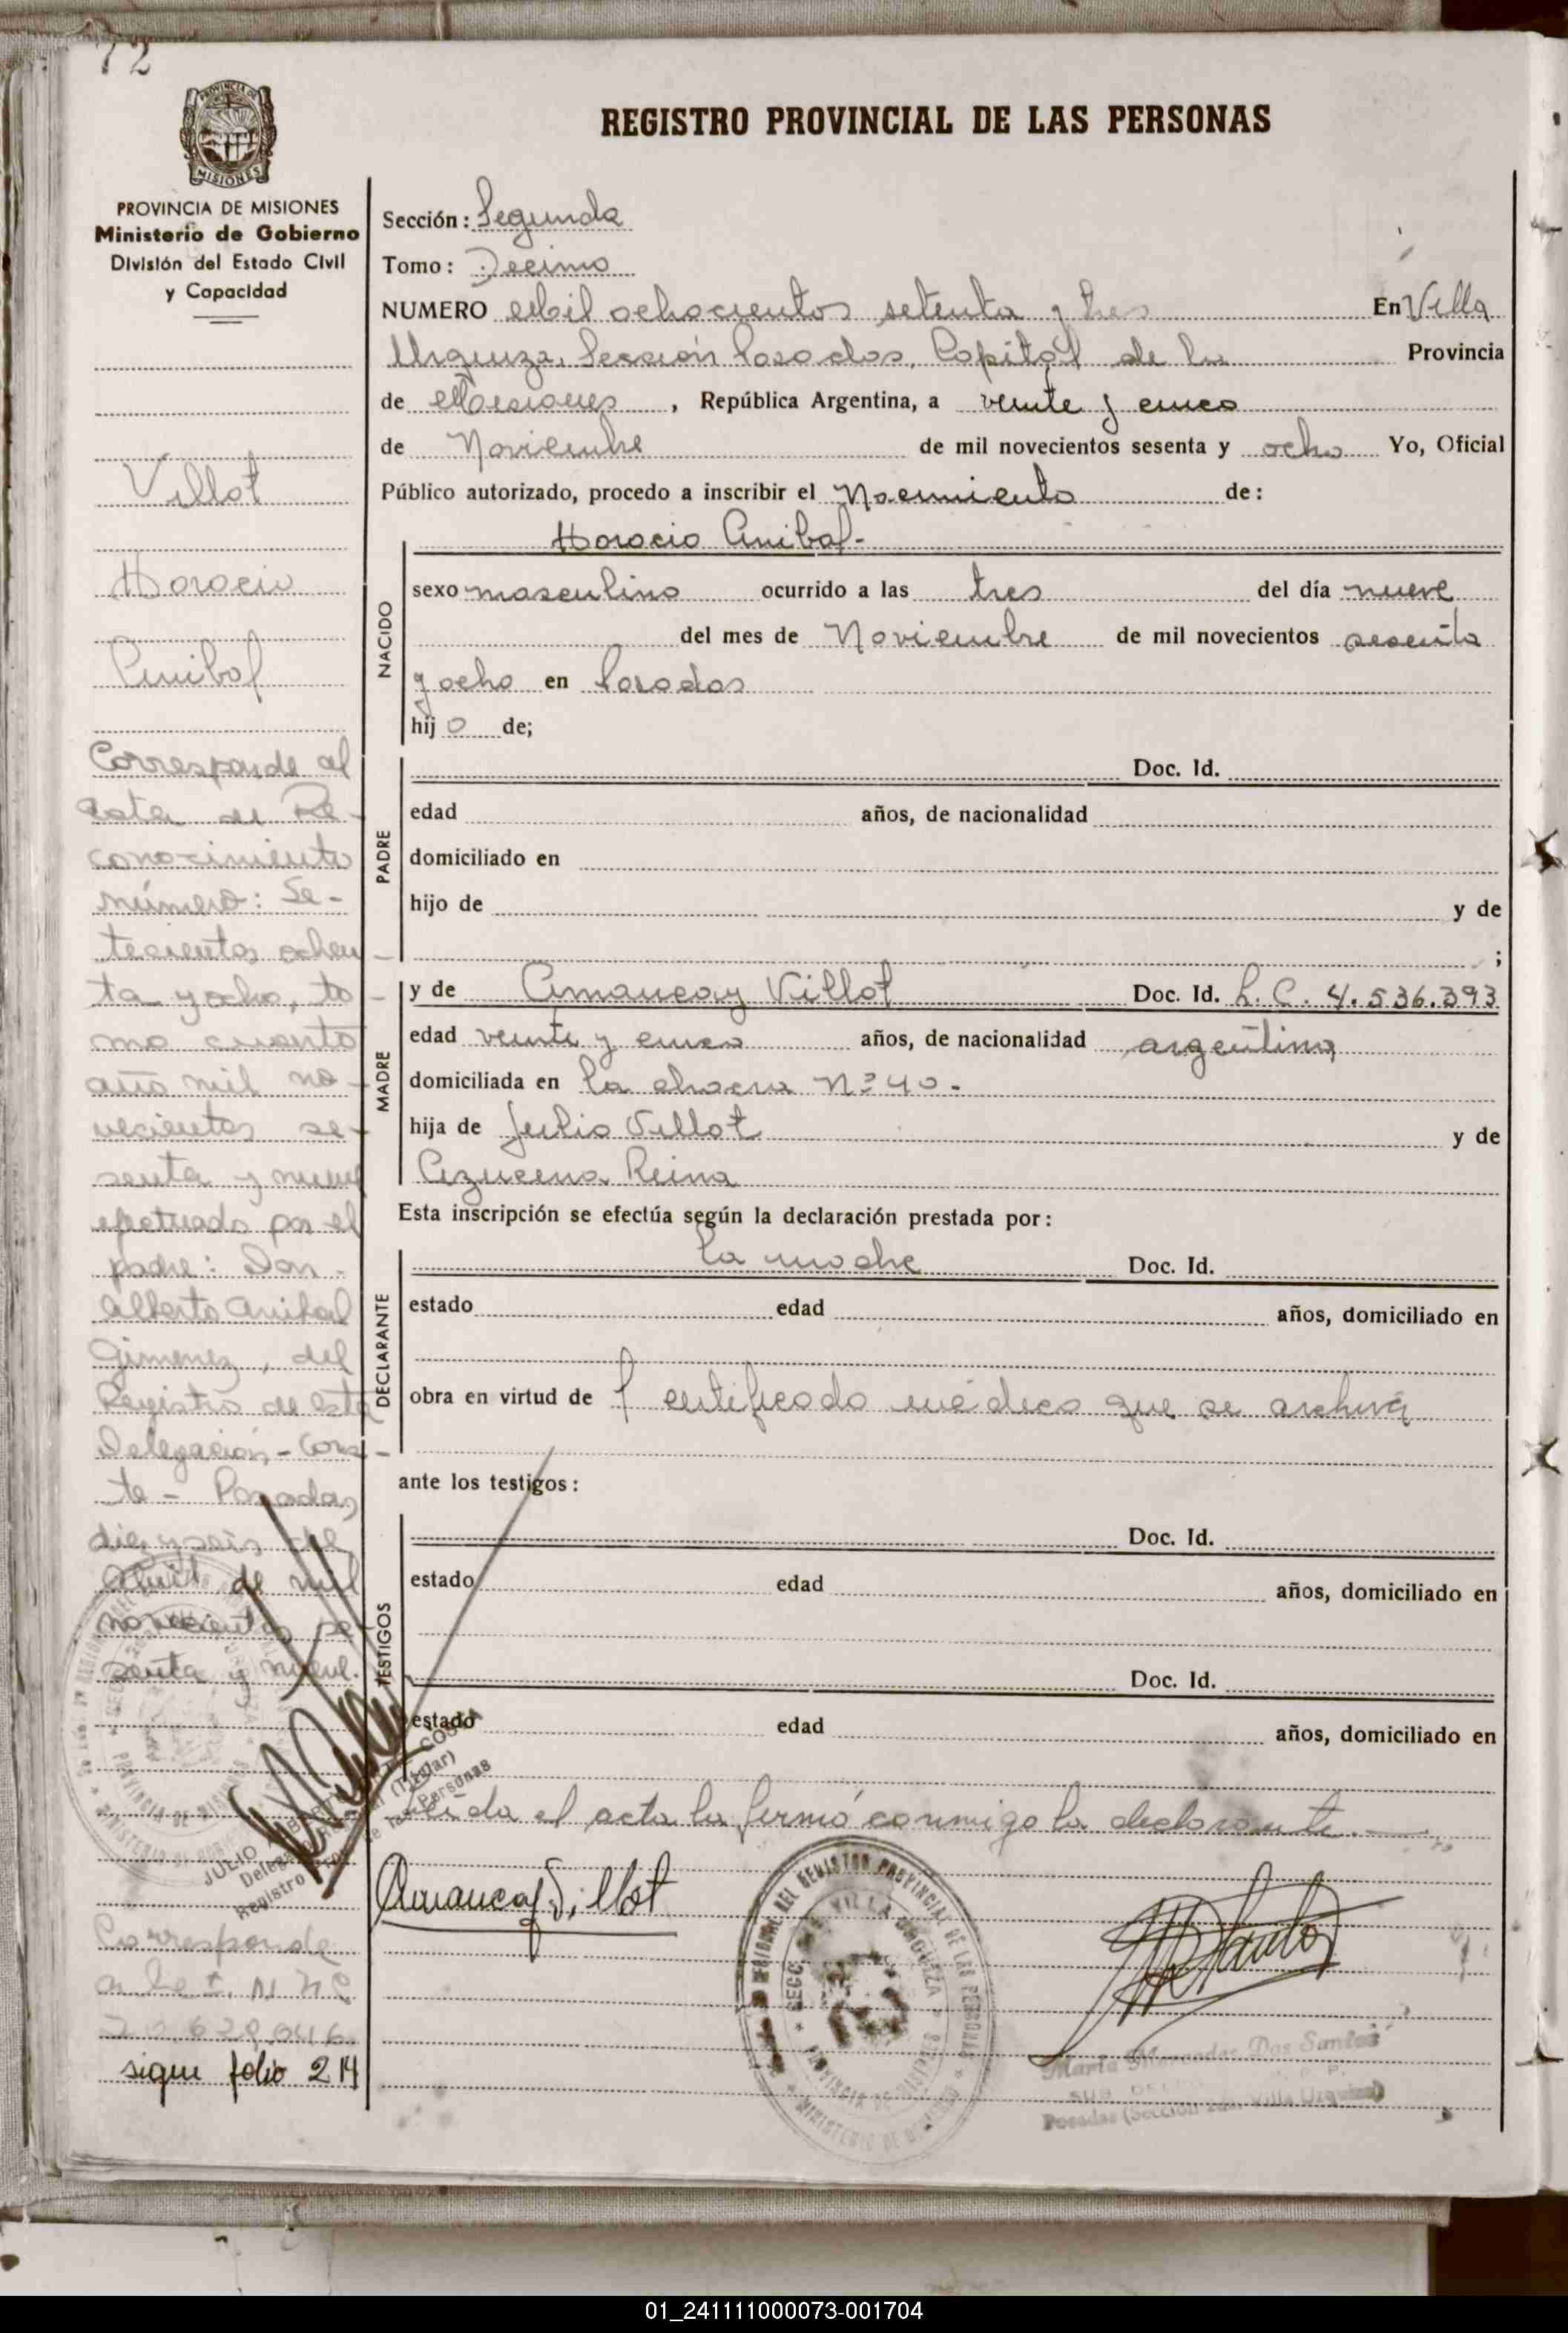 72
PROVINCIA DE MISIONES
MISIONES
PROVINCIA DE MISIONES
Ministerio de Gobierno
División del Estado Civil
y Capacidad
Villot
Horacio
Anibal
Corresponde al
acta de Re-
conocimiento
número: Se-
tecientos ochen-
ta y ocho, to-
mo cuarto
año mil no-
vecientos se-
senta y nueve
efectuado por el
padre: Don
Alberto Anibal
Gimenez, del
Registro de esta
Delegación - Cons-
te - Posadas,
diez y seis de
Abril de mil
novecientos se-
senta y nueve.
JULIO COSTA
(Titular)
Registro de las Personas
Corresponde
sigue folio 214
REGISTRO PROVINCIAL DE LAS PERSONAS
Sección: Segunda
Tomo: Decimo
NUMERO Mil ochocientos setenta y tres En Villa
Urquiza, Sección Posadas, Capital de la Provincia
de Misiones, República Argentina, a veinte y cinco
de Noviembre de mil novecientos sesenta y ocho Yo, Oficial
Público autorizado, procedo a inscribir el Nacimiento de:
NACIDO
Horacio Anibal-
sexo masculino ocurrido a las tres del día nueve
del mes de Noviembre de mil novecientos sesenta
y ocho en Posadas
hijo de;
PADRE
Doc. Id.
edad años, de nacionalidad
domiciliado en
hijo de y de
;
MADRE
y de Amancay Villot Doc. Id. L. C. 4.536.393
edad veinte y cinco años, de nacionalidad argentina
domiciliada en la chacra Nº 40.
hija de Julio Villot y de
Azucena Reina
Esta inscripción se efectúa según la declaración prestada por:
DECLARANTE
la madre Doc. Id.
estado edad años, domiciliado en
obra en virtud de l certificado médico que se archiva
ante los testigos:
TESTIGOS
Doc. Id.
estado edad años, domiciliado en
Doc. Id.
estado edad años, domiciliado en
Leída el acta la firmó conmigo la declarante.
Amancay Villot
REGISTRO PROVINCIAL DE LAS PERSONAS
SECC. VILLA URQUIZA
PROVINCIA DE MISIONES
MINISTERIO DE
María Mercedes Dos Santos
Posadas (Sección 2da. Villa Urquiza)
01_241111000073-001704